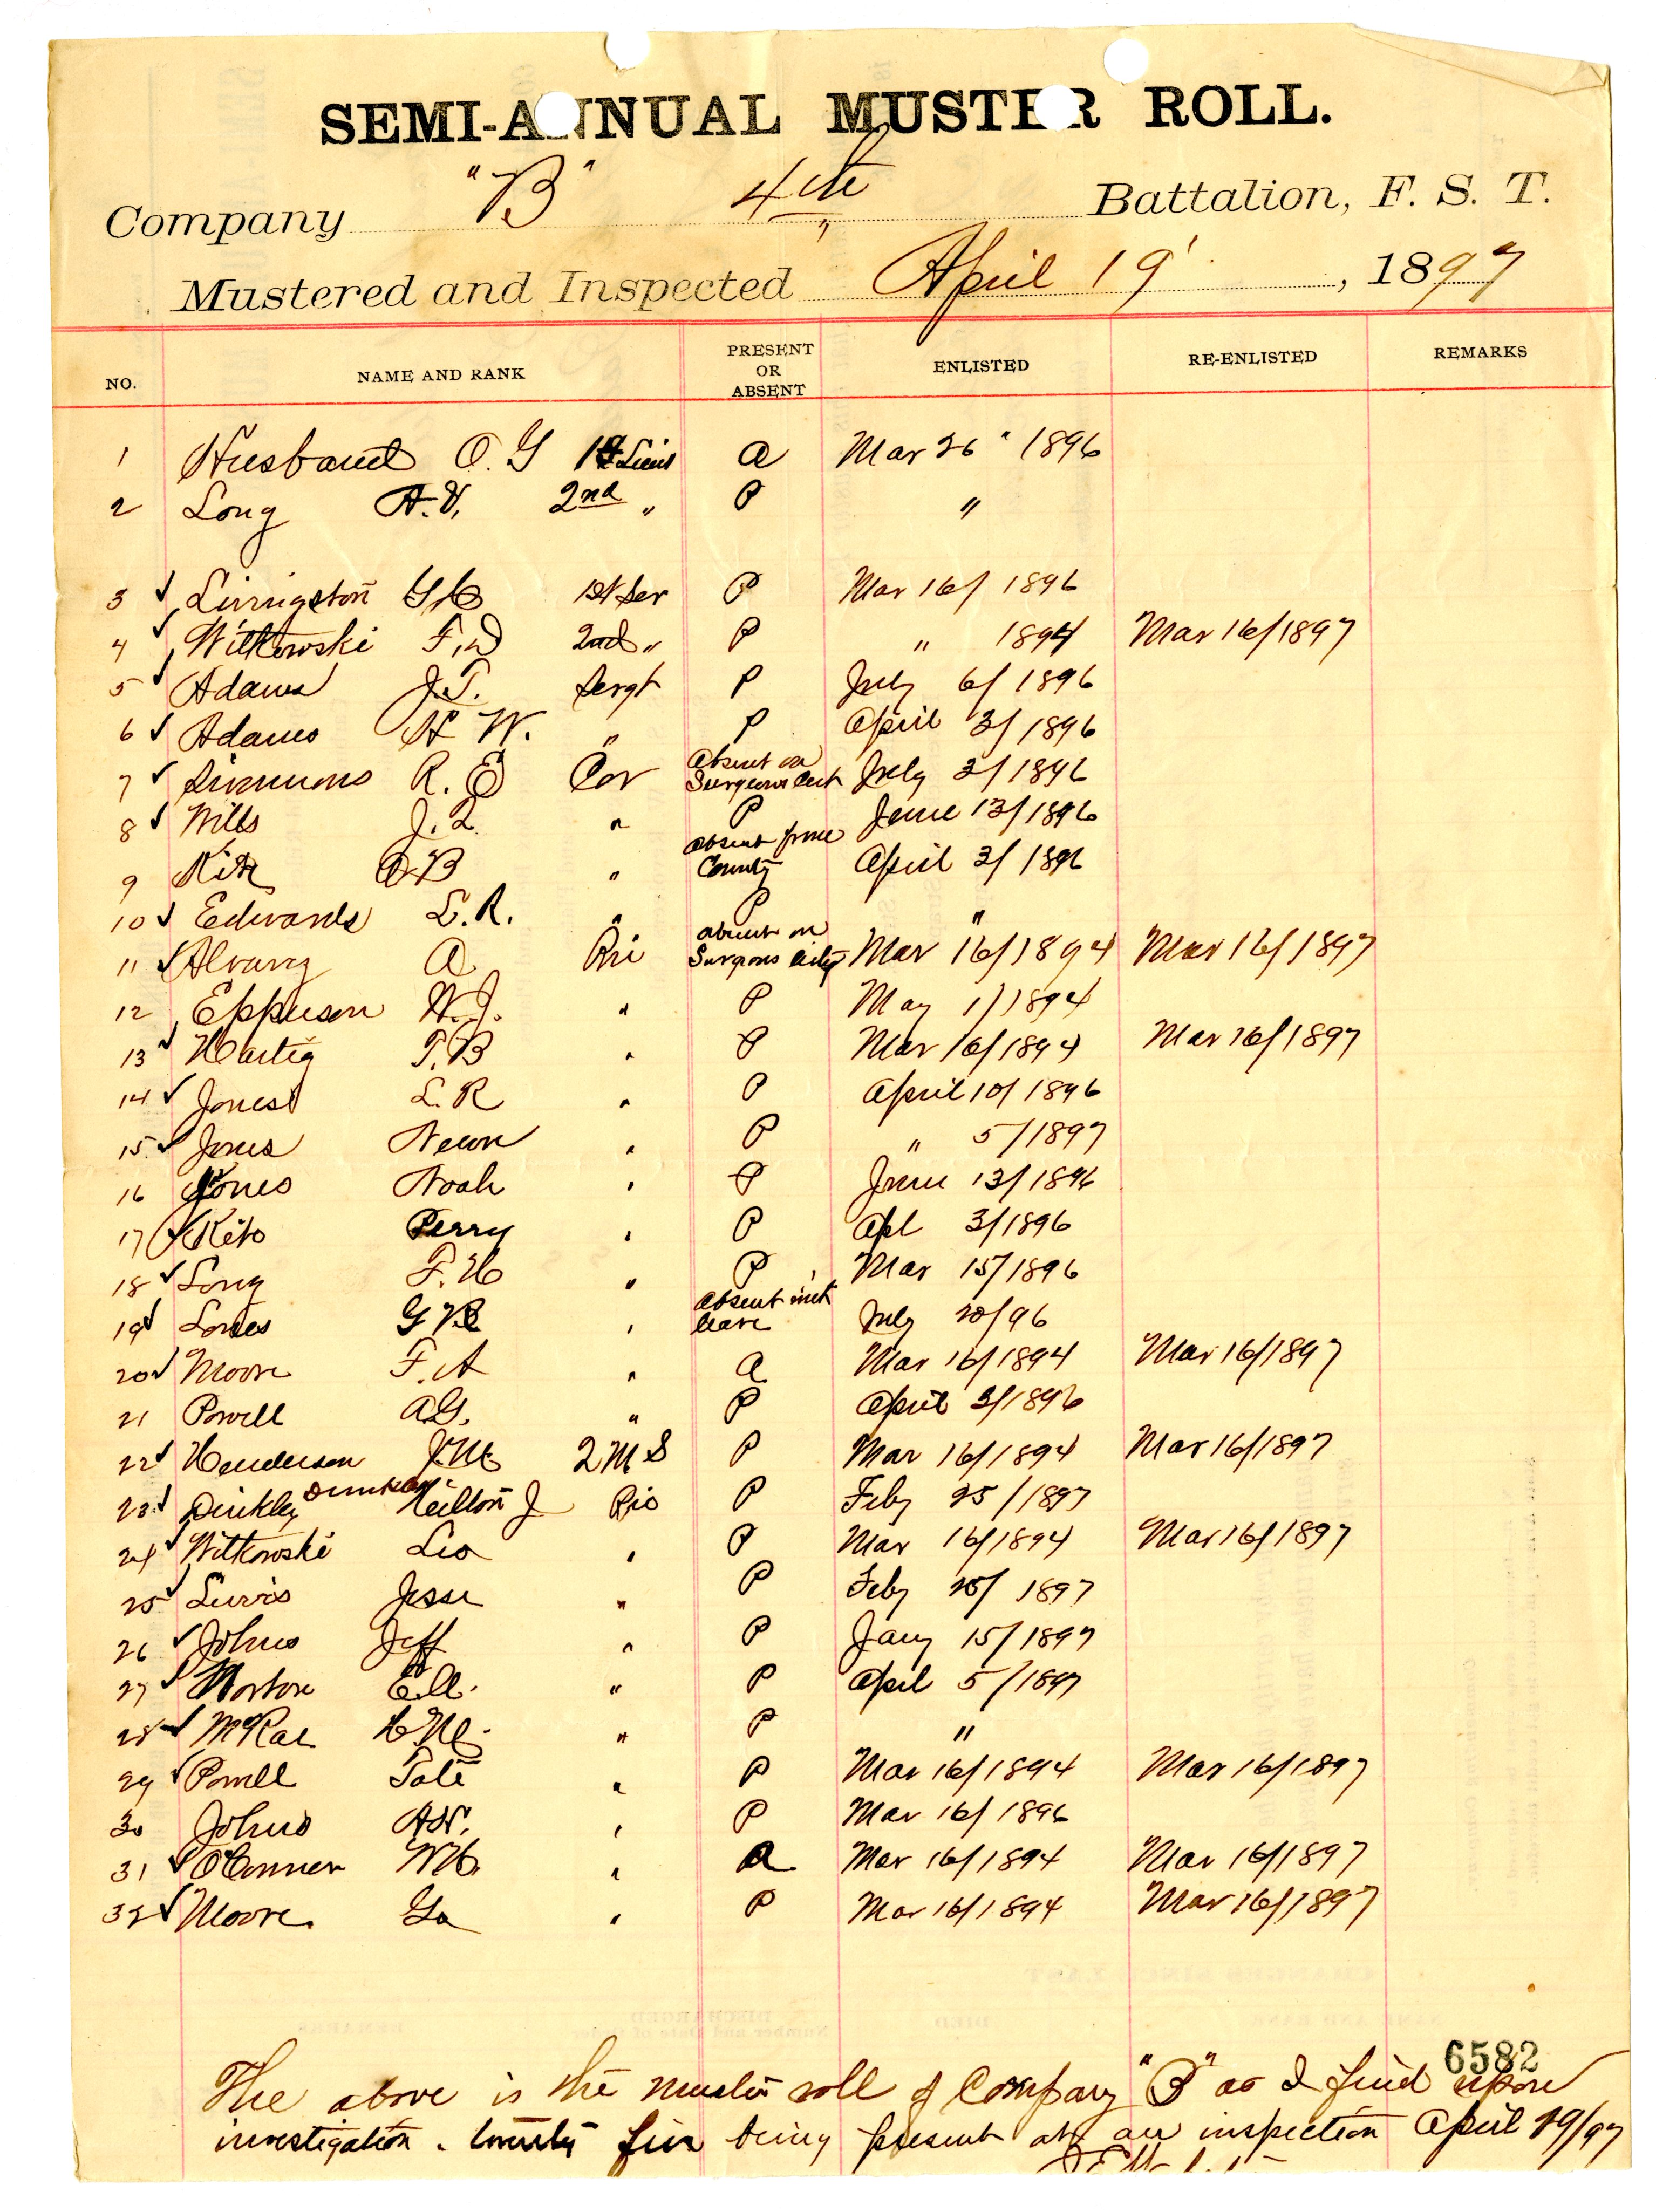 SEMI-ANNUAL MUSTER ROLL.
Company "B" 4th Battalion, F. S. T.
Mustered and Inspected April 19, 1897
NO. NAME AND RANK PRESENT OR ABSENT ENLISTED RE-ENLISTED REMARKS
1 Husband O. G 1st Lieut a Mar 26" 1896
2 Long A. V. 2nd " P "
3 Livingston 1st Ser P Mar 16/ 1896
4 Witkowski F. D 2nd " P " 1894 Mar 16/1897
5 Adams J. T. Sergt P July 6/ 1896
6 Adams H W. " P April 3/ 1896
7 Simmons R. E Cor Absent on Surgeons Cert July 3/1896
8 Wills J. L. " P June 13/1896
9 B " absent from County April 3/ 1896
10 Edwards L. R. " P "
11 Alvarez A Pri absent on Surgeons Mar 16/1894 Mar 16/1897
12 Epperson W. J. " P May 1/1894
13 Hartig T. B " P Mar 16/1894 Mar 16/1897
14 Jones L. R " P April 10/ 1896
15 Jones " P " 5/1897
16 Jones Noah " P June 13/1896
17 Perry " P Apl 3/1896
18 Long F. H " P Mar 15/1896
19 G " Absent leave July 20/96
20 Moore F. A " a Mar 16/1894 Mar 16/1897
21 Powell A G. " P April 3/1896
22 Henderson J. M. 2 M S P Mar 16/1894 Mar 16/1897
23 Dinkley J P Feby 25/1897
24 Witkowski Leo " P Mar 16/1894 Mar 16/1897
25 Lewis Jesse " P Feby 25/ 1897
26 Johns Jeff " P Jany 15/1897
27 Morton " P April 5/1897
28 McRae " P "
29 Powell Tate " P Mar 16/1894 Mar 16/1897
30 Johns A W. " P Mar 16/ 1896
31 O'Conner " a Mar 16/1894 Mar 16/1897
32 Moore Geo " P Mar 16/1894 Mar 16/1897
6582
The above is the muster roll of Company "B" as I find upon
investigation. twenty five being present at an inspection April 19/97